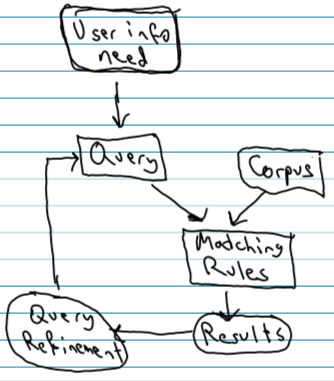 User info
need
Query
Corpus
Matching
Rules
Results
Query
Refinement